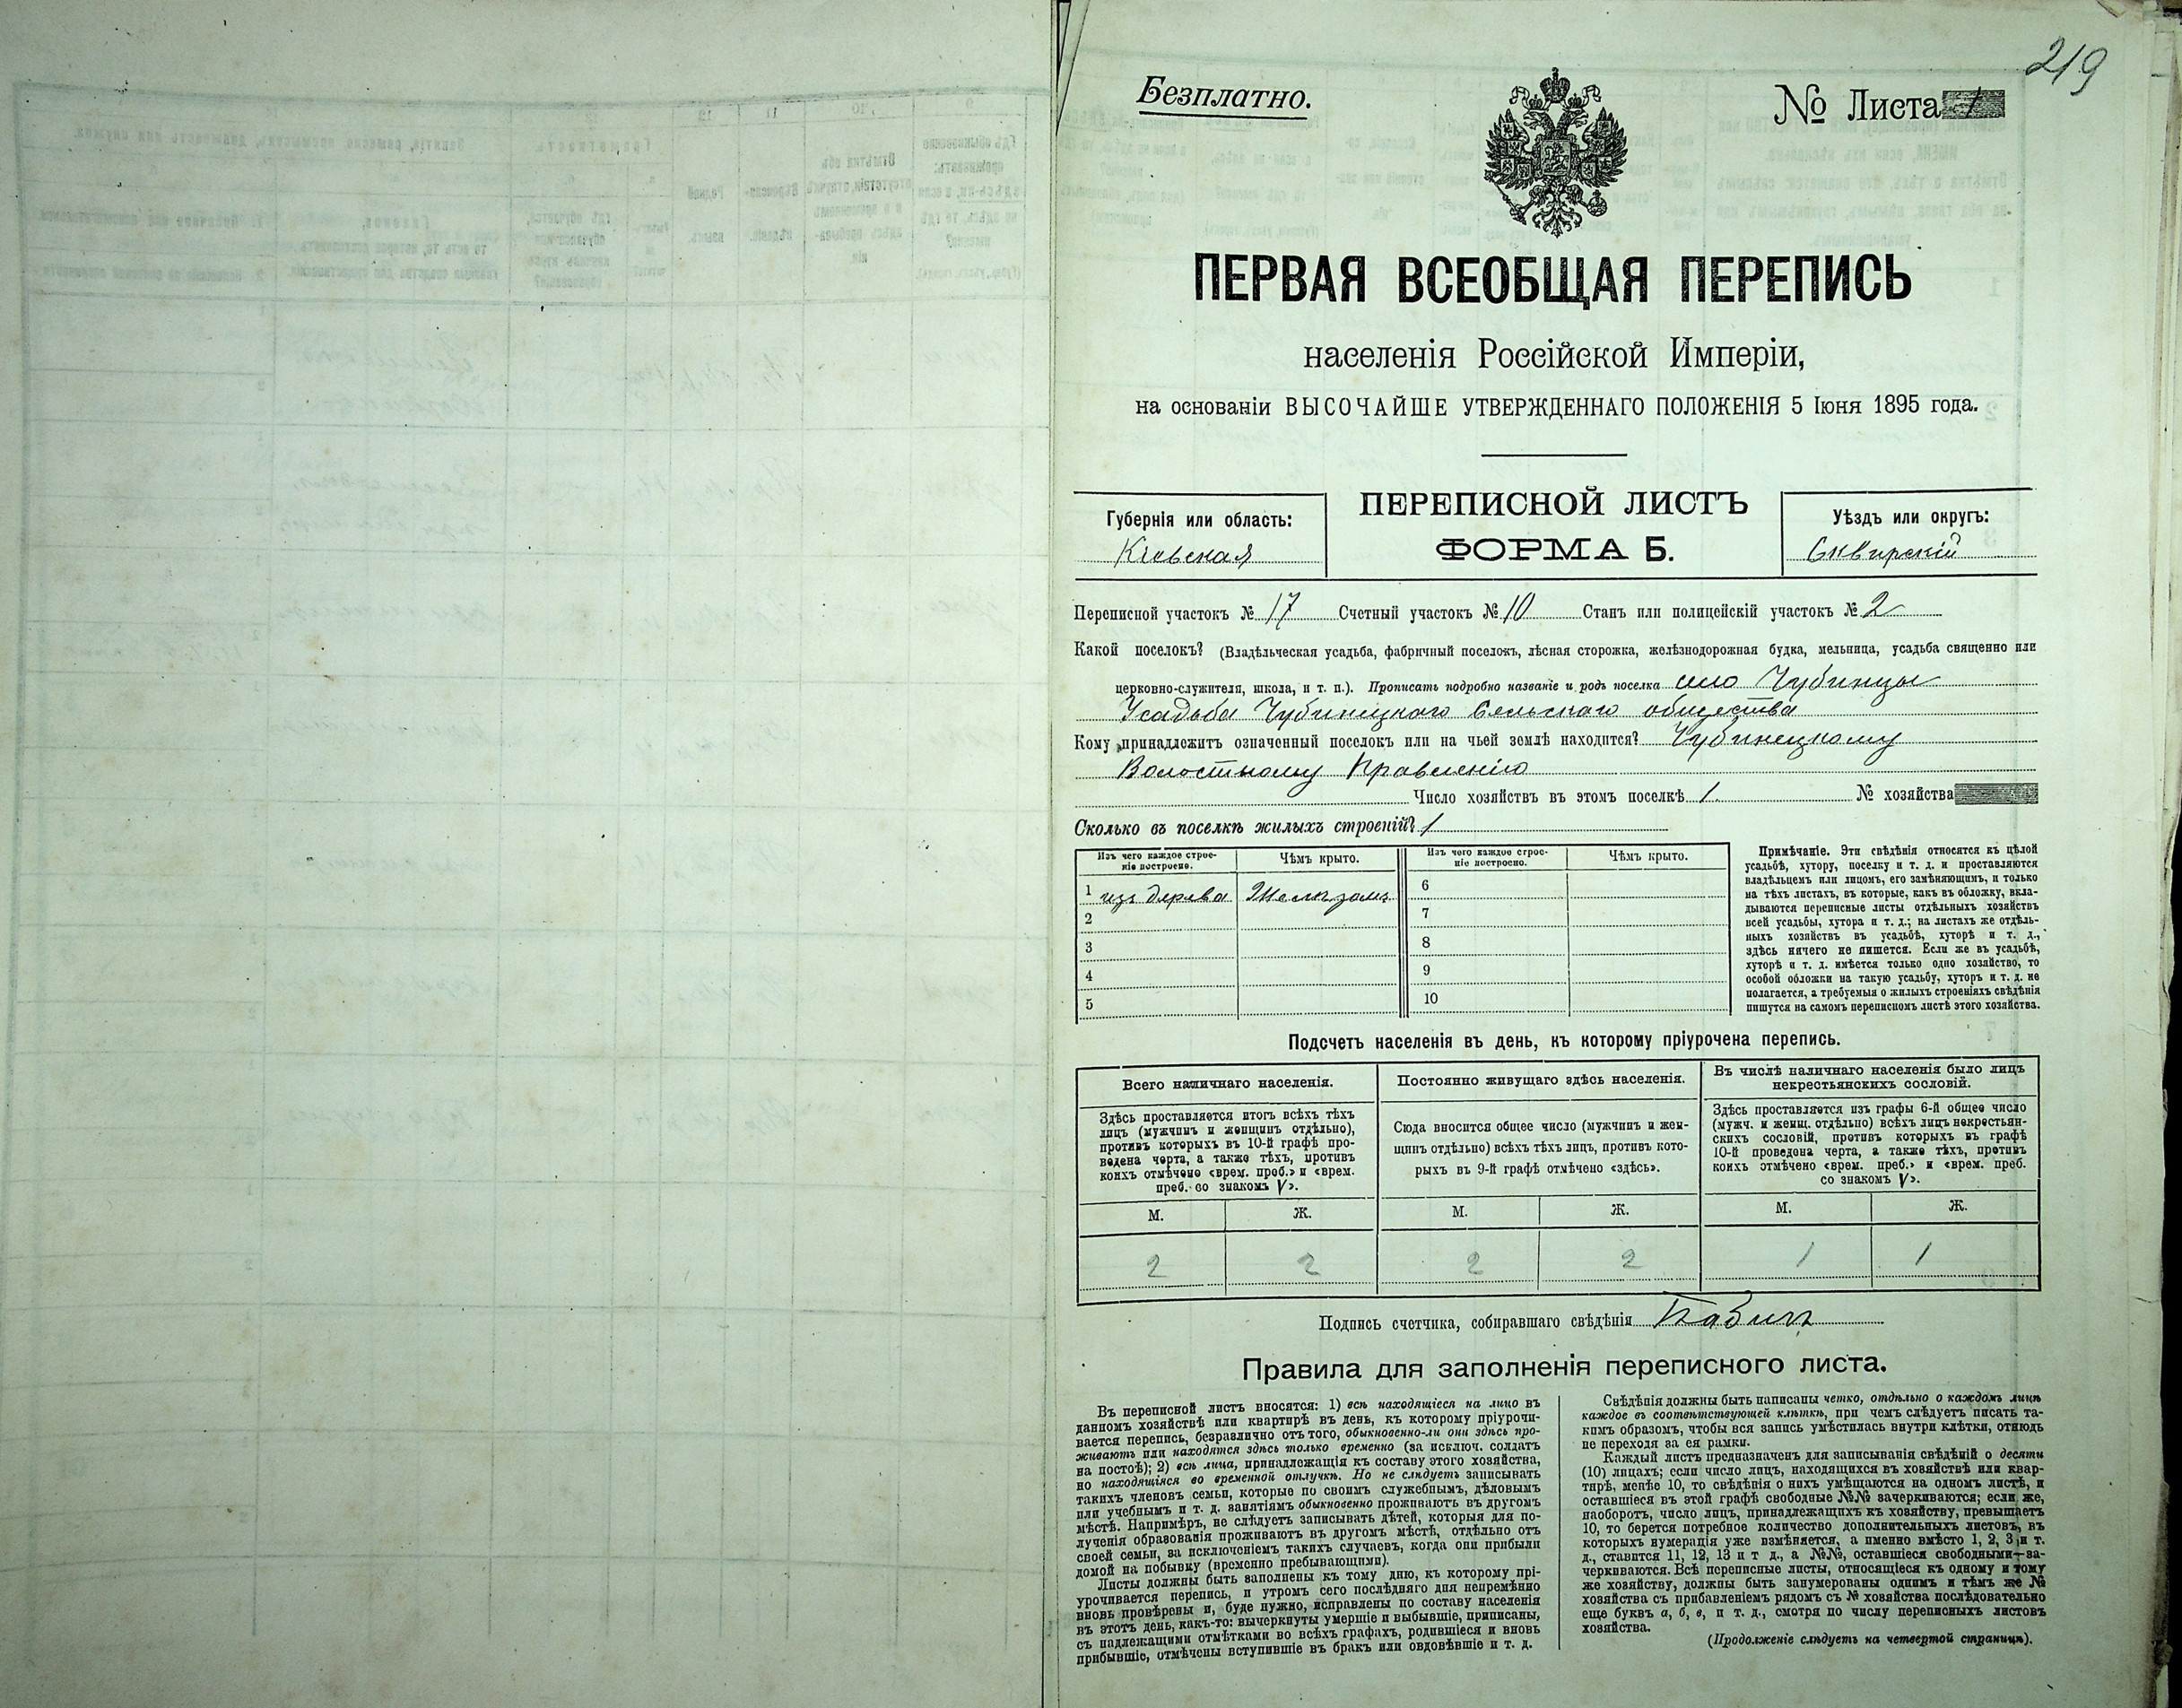 219
Безплатно.
№ Листа 1
ПЕРВАЯ ВСЕОБЩАЯ ПЕРЕПИСЬ
населенія Россійской Имперіи,
на основаніи ВЫСОЧАЙШЕ УТВЕРЖДЕННАГО ПОЛОЖЕНІЯ 5 Іюня 1895 года.
Губернія или область:
Кіевская
ПЕРЕПИСНОЙ ЛИСТЪ
ФОРМА Б.
Уѣздъ или округъ:
Сквирскій
Переписной участокъ № 17 Счетный участокъ № 10 Станъ или полицейскій участокъ № 2
Какой поселокъ? (Владѣльческая усадьба, фабричный поселокъ, лѣсная сторожка, желѣзнодорожная будка, мельница, усадьба священно или
церковно-служителя, школа, и т. п.). Прописать подробно названіе и родъ поселка село Чубинцы
Усадьба Чубинецкаго Сельскаго общества
Кому принадлежитъ означенный поселокъ или на чьей землѣ находится? Чубинецкому
Волостному Правленію
Число хозяйствъ въ этомъ поселкѣ 1. № хозяйства
Сколько въ поселкѣ жилыхъ строеній? 1
Изъ чего каждое строе-
ніе построено.
Чѣмъ крыто.
Изъ чего каждое строе-
ніе построено.
Чѣмъ крыто.
1 изъ дерева Желѣзомъ 6
2 7
3 8
4 9
5 10
Примѣчаніе. Эти свѣдѣнія относятся къ цѣлой
усадьбѣ, хутору, поселку и т. д. и проставляются
владѣльцемъ или лицомъ, его замѣняющимъ, и только
на тѣхъ листахъ, въ которые, какъ въ обложку, вкла-
дываются переписные листы отдѣльныхъ хозяйствъ
всей усадьбы, хутора и т. д.; на листахъ же отдѣль-
ныхъ хозяйствъ въ усадьбѣ, хуторѣ и т. д.,
здѣсь ничего не пишется. Если же въ усадьбѣ,
хуторѣ и т. д. имѣется только одно хозяйство, то
особой обложки на такую усадьбу, хуторъ и т. д. не
полагается, а требуемыя о жилыхъ строеніяхъ свѣдѣнія
пишутся на самомъ переписномъ листѣ этого хозяйства.
Подсчетъ населенія въ день, къ которому пріурочена перепись.
Всего наличнаго населенія.
Здѣсь проставляется итогъ всѣхъ тѣхъ
лицъ (мужчинъ и женщинъ отдѣльно),
противъ которыхъ въ 10-й графѣ про-
ведена черта, а также тѣхъ, противъ
коихъ отмѣчено «врем. преб.» и «врем.
преб. со знакомъ V».
Постоянно живущаго здѣсь населенія.
Сюда вносится общее число (мужчинъ и жен-
щинъ отдѣльно) всѣхъ тѣхъ лицъ, противъ кото-
рыхъ въ 9-й графѣ отмѣчено «здѣсь».
Въ числѣ наличнаго населенія было лицъ
некрестьянскихъ сословій.
Здѣсь проставляется изъ графы 6-й общее число
(мужч. и женщ. отдѣльно) всѣхъ лицъ некрестьян-
скихъ сословій, противъ которыхъ въ графѣ
10-й проведена черта, а также тѣхъ, противъ
коихъ отмѣчено «врем. преб.» и «врем. преб.
со знакомъ V».
М. Ж. М. Ж. М. Ж.
2 2 2 2 1 1
Подпись счетчика, собиравшаго свѣдѣнія
Правила для заполненія переписного листа.
Въ переписной листъ вносятся: 1) всѣ находящіеся на лицо въ
данномъ хозяйствѣ или квартирѣ въ день, къ которому пріурочи-
вается перепись, безразлично отъ того, обыкновенно-ли они здѣсь про-
живаютъ или находятся здѣсь только временно (за исключ. солдатъ
на постоѣ); 2) всѣ лица, принадлежащія къ составу этого хозяйства,
но находящіяся во временной отлучкѣ. Но не слѣдуетъ записывать
такихъ членовъ семьи, которые по своимъ служебнымъ, дѣловымъ
или учебнымъ и т. д. занятіямъ обыкновенно проживаютъ въ другомъ
мѣстѣ. Напримѣръ, не слѣдуетъ записывать дѣтей, которыя для по-
лученія образованія проживаютъ въ другомъ мѣстѣ, отдѣльно отъ
своей семьи, за исключеніемъ такихъ случаевъ, когда они прибыли
домой на побывку (временно пребывающими).
Листы должны быть заполнены къ тому дню, къ которому прі-
урочивается перепись, и утромъ сего послѣдняго дня непремѣнно
вновь провѣрены и, буде нужно, исправлены по составу населенія
въ этотъ день, какъ-то: вычеркнуты умершіе и выбывшіе, приписаны,
съ надлежащими отмѣтками во всѣхъ графахъ, родившіеся и вновь
прибывшіе, отмѣчены вступившіе въ бракъ или овдовѣвшіе и т. д.
Свѣдѣнія должны быть написаны четко, отдѣльно о каждомъ лицѣ
каждое въ соотвѣтствующей клѣткѣ, при чемъ слѣдуетъ писать та-
кимъ образомъ, чтобы вся запись умѣстилась внутри клѣтки, отнюдь
не переходя за ея рамки.
Каждый листъ предназначенъ для записыванія свѣдѣній о десяти
(10) лицахъ; если число лицъ, находящихся въ хозяйствѣ или квар-
тирѣ, менѣе 10, то свѣдѣнія о нихъ умѣщаются на одномъ листѣ, и
оставшіеся въ этой графѣ свободные №№ зачеркиваются; если же,
наоборотъ, число лицъ, принадлежащихъ къ хозяйству, превышаетъ
10, то берется потребное количество дополнительныхъ листовъ, въ
которыхъ нумерація уже измѣняется, а именно вмѣсто 1, 2, 3 и т.
д., ставится 11, 12, 13 и т д., а №№, оставшіеся свободными—за-
черкиваются. Всѣ переписные листы, относящіеся къ одному и тому
же хозяйству, должны быть занумерованы однимъ и тѣмъ же №
хозяйства съ прибавленіемъ рядомъ съ № хозяйства послѣдовательно
еще буквъ а, б, в, и т. д., смотря по числу переписныхъ листовъ
хозяйства.
(Продолженіе слѣдуетъ на четвертой страницѣ).